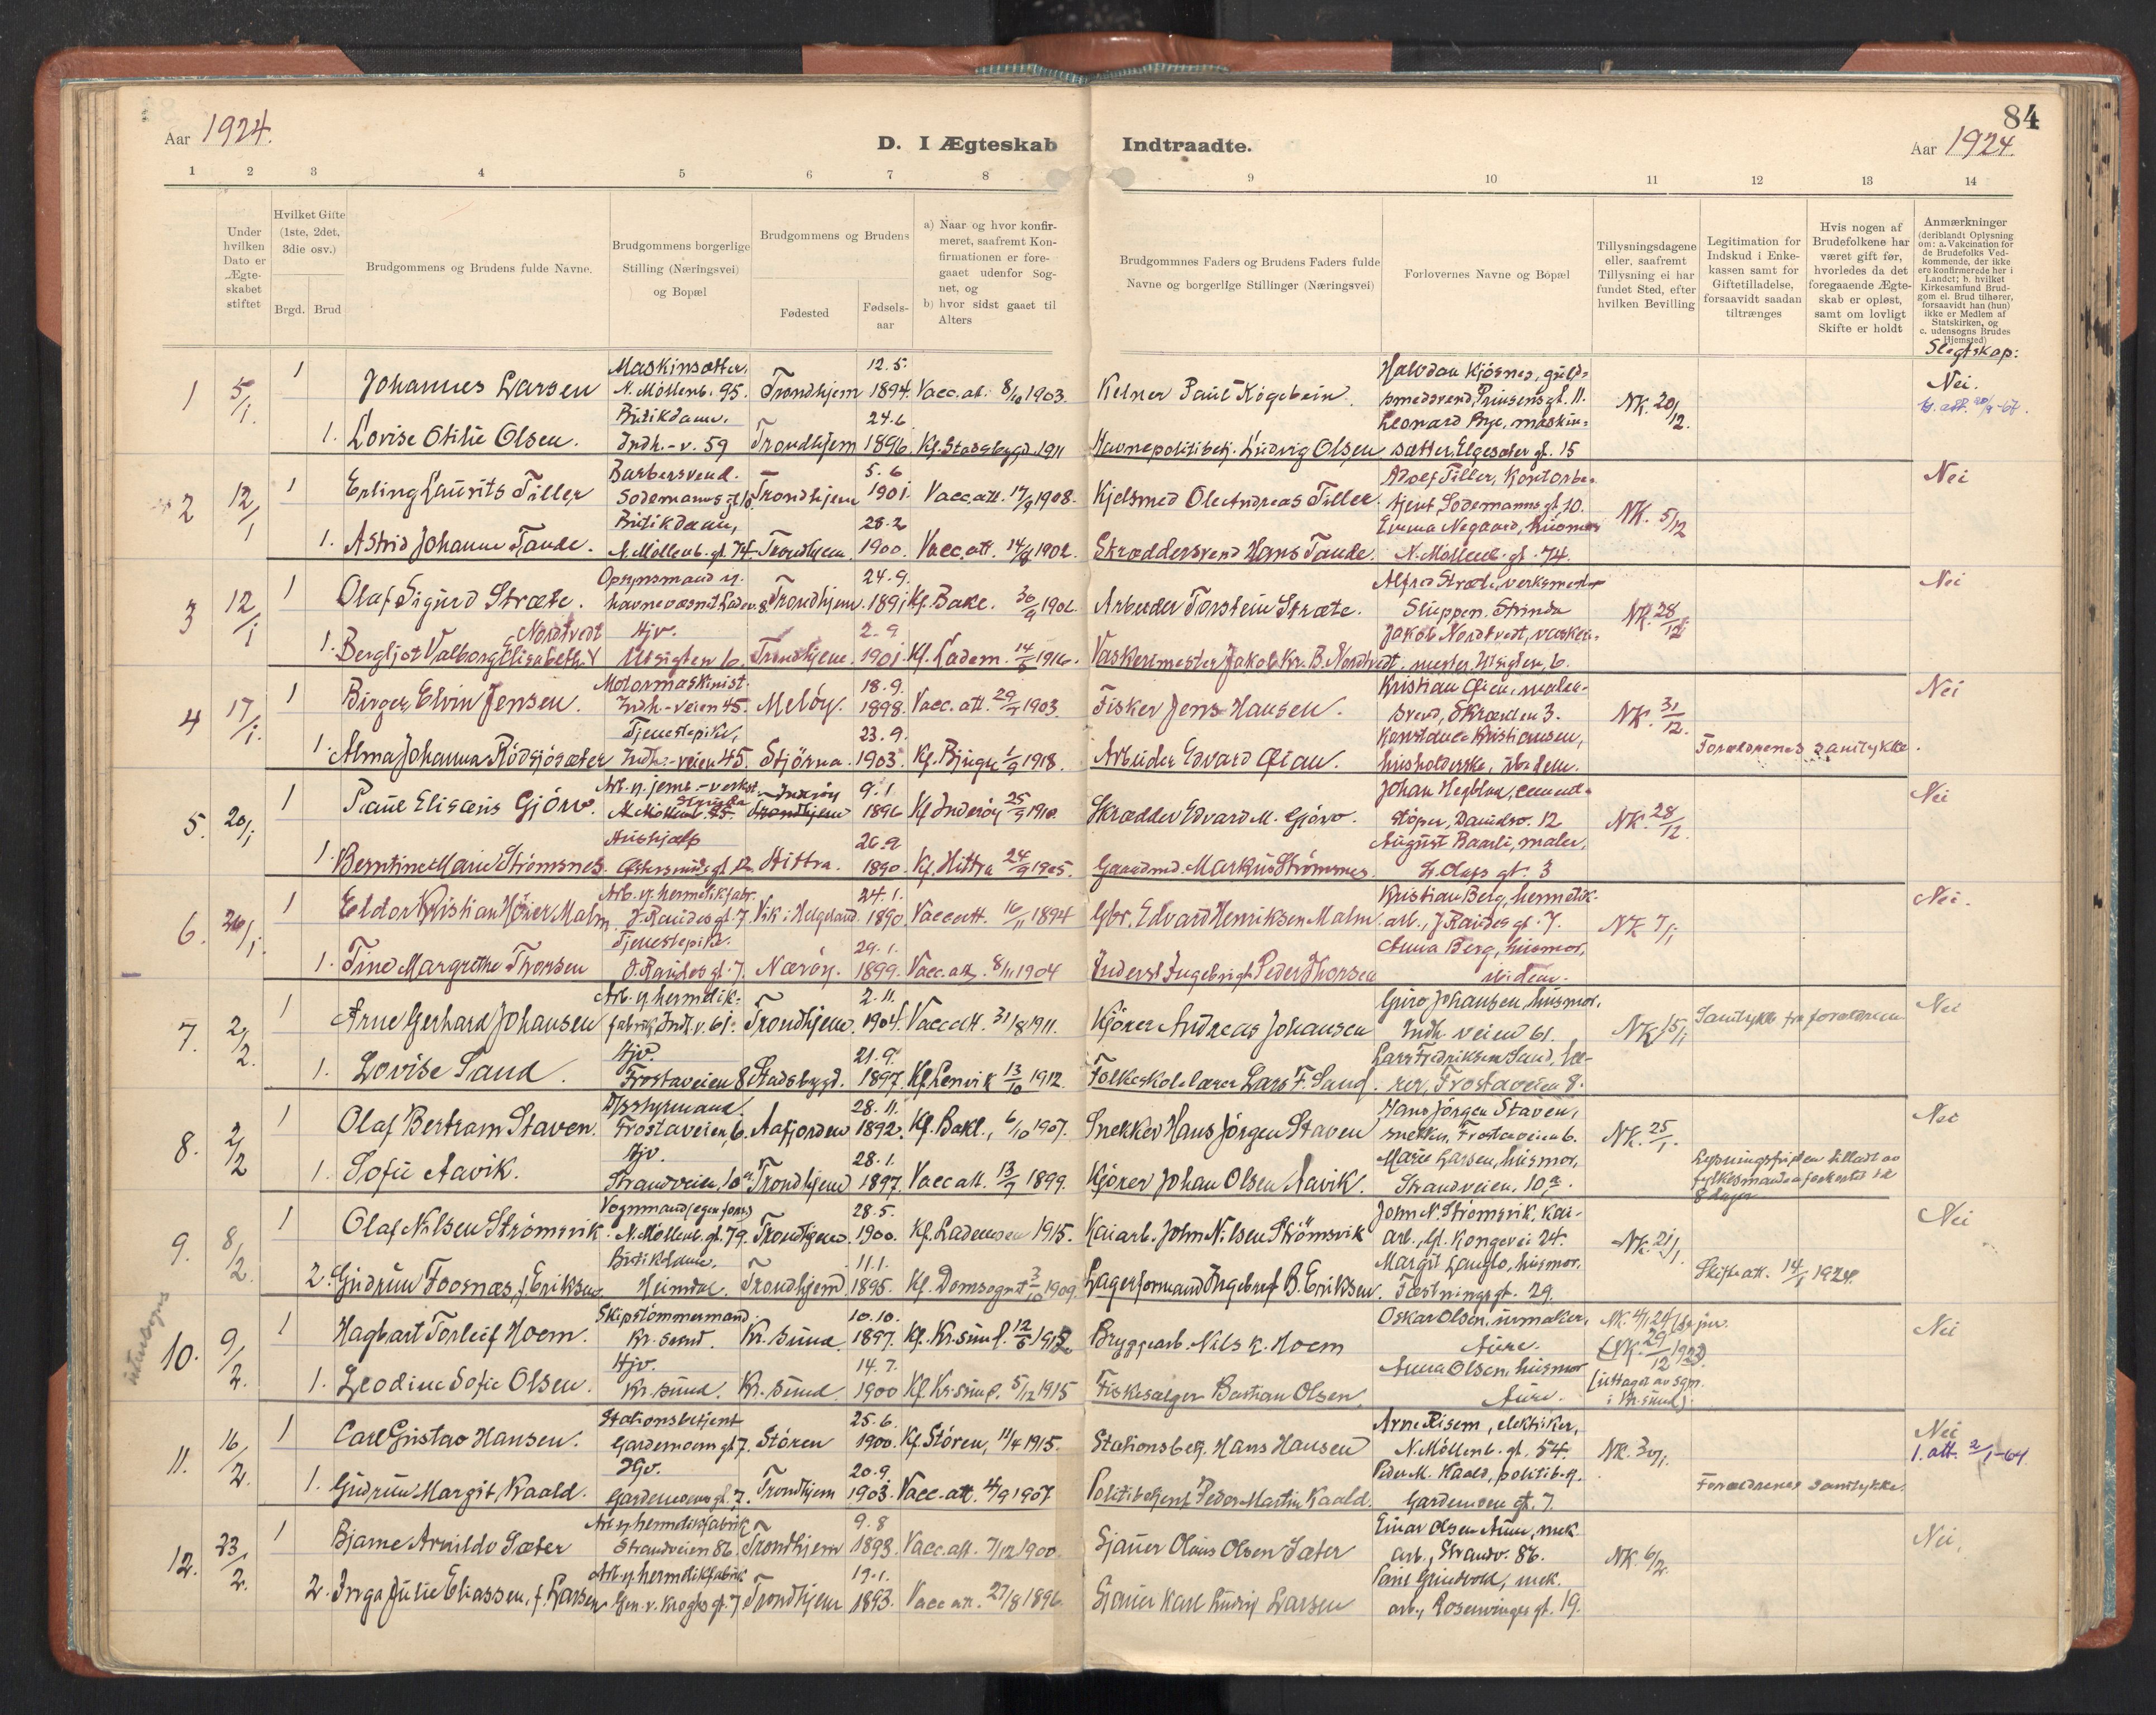 84
Aar 1924.
D. I Ægteskab Indtraadte.
Aar 1924.
1 2 3 4 5 6 7 8 9 10 11 12 13 14
Under hvilken Dato er Ægteskabet stiftet
Hvilket Gifte (1ste, 2det, 3die osv.)
Brgd. Brud
Brudgommens og Brudens fulde Navne.
Brudgommens borgerlige Stilling (Næringsvei) og Bopæl
Brudgommens og Brudens
Fødested
Fødselsaar
a) Naar og hvor konfirmeret, saafremt Konfirmationen er foregaaet udenfor Sognet, og
b) hvor sidst gaaet til Alters
Brudgommnes Faders og Brudens Faders fulde Navne og borgerlige Stillinger (Næringsvei)
Forlovernes Navne og Bopæl
Tillysningsdagene eller, saafremt Tillysning ei har fundet Sted, efter hvilken Bevilling
Legitimation for Indskud i Enkekassen samt for Giftetilladelse, forsaavidt saadan tiltrænges
Hvis nogen af Brudefolkene har været gift før, hvorledes da det foregaaende Ægteskab er opløst, samt om lovligt Skifte er holdt
Anmærkninger (deriblandt Oplysning om: a. Vakcination for de Brudefolks Vedkommende, der ikke ere konfirmerede her i Landet; b. hvilket Kirkesamfund Brudgom el. Brud tilhører, forsaavidt han (hun) ikke er Medlem af Statskirken, og c. udensogns Brudes Hjemsted)
Slegtskap:
1 5/1 1 Johannes Larsen Maskinsætter, N. Möllenb. 95. Trondhjem 12.5. 1894. Vacc. at. 8/10 1903. Kelner Paul Kögebein. Halvdan Kjösnes, guldsmedsvend, Prinsensgt. 11. NK. 20/12. Nei.
1. Lovise Otilie Olsen. Butikdame. Indh.-v. 59 Trondhjem 24.6 1896. Kf. Stadsbygd 1911 Havnepolitibetj. Ludvig Olsen Leonard Bye, maskinsætter, Elgesæter gt. 15
2 12/1 1 Erling Laurits Tiller Barbersvend. Sodemannsgt. 10. Trondhjem 5.6 1901. Vacc. att. 17/9 1908. Kjelsmed Ole Andreas Tiller. Adolf Tiller, Kontorbetjent, Sodemanns gt. 10. NK. 5/12 Nei
1. Astrid Johanne Tande. Butikdame, N. Möllenb. gt. 74. Trondhjem 28.2 1900. Vacc. att. 14/8 1902. Skræddersvend Hans Tande. Emma Negaard, husmor N. Möllenb. gt. 74.
3 12/1 1 Olaf Sigurd Stræte. Opsynsmand v. havnevæsnet, Ladev. 8 Trondhjem. 24.9. 1891 Kf. Bakl. 30/9 1906. Arbeider Torstein Stræte. Alfred Stræte, verksmester Sluppen. Strinda NK. 28/12. Nei
1. Bergljot Valborg Elisabeth Nordtvedt Hjv. Utsigten 6. Trondhjem. 2.9 1901. Kf. Ladem. 14/5 1916. Vaskerimester Jakob Kr. B. Nordtvedt. Jakob Nordtvedt, vaskerimester, Utsigten, 6.
4 17/1. 1 Birger Elvin Jensen. Motormaskinist. Indh.-veien 45. Melöy. 18.9. 1898. Vacc. att. 29/7 1903. Fisker Jens Hansen. Kristian Øien, malersvend, Skrænten 3. NK. 31/12. Nei
1. Alma Johanna Rödsjösæter Tjenestepike, Indh.-veien 45. Stjörna. 23.9. 1903. Kf. Bjugn 1/9 1918. Arbeider Edvard Øian. Konstance Kristiansen, husholderske, ibidem. Forældrenes samtykke.
5. 20/1 1 Paul Elisæus Gjörv. Arb. v. jernb.-verkst. Strinda Inderöy 9.1 1896 Kf. Inderöy 25/9 1910. Skrædder Edvard M. Gjörv. Johan Hegblad, cementstöper, Danielsv. 12 NK. 28/12. Nei
1. Berntine Marie Strömsnes. Hushjælp Østersunds gt. 12 Hittra. 26.2 1890. Kf. Hittra 24/9 1905. Gaardmd. Markus Strömsnes. August Baarli, maler, St. Olafs gt. 3
6. 26/1. 1 Eldor Kristian Höier Malm Arb. v. hermetikfabr. J. Raudes gt. 7. Vik i Helgeland. 24.1. 1890. Vacc att. 16/11 1894 Gbr. Edvard Henriksen Malm. Kristian Berg, hermetikarb., J. Raudes gt. 7. NK 7/1 Nei.
1. Tine Margrethe Thorsen Tjenestepike. J. Raudes gt. 7. Næröy. 29.1. 1899. Vacc. att. 8/11 1904 Inderst Ingebrigt Peder Thorsen Anna Berg, husmor, ibidem.
7. 2/2. 1 Arne Gerhard Johansen Arb. v. hermetikfabrik Indh. v. 61. Trondhjem. 2.11. 1904. Vacc att. 31/8 1911. Kjörer Andreas Johansen Guro Johansen, husmor, Indh. veien 61. NK 15/1 Samtykke fra forældrene Nei
1. Lovise Sand. Hjv. Frostaveien 8 Stadsbygd. 21.9. 1897. Kf. Lenvik 13/10 1912. Folkeskolelærer Lars F. Sand. Lars Fredriksen Sand, lærer, Frostaveien 8.
8. 2/2 1 Olaf Bertram Staven. Frostaveien 6. Aafjorden 28.11. 1892. Kf. Bakl., 6/10 1907. Snekker Hans Jörgen Staven Hans Jörgen Staven, snekker, Frostaveien 6. NK. 25/1. Nei
1. Sofie Aavik. Hjv. Strandveien, 10a Trondhjem 28.1. 1897. Vacc att. 13/7 1899. Kjörer Johan Olsen Aavik. Marie Larsen, husmor, Strandveien, 10a. Lysningsfristen tilladt av fylkesmanden forkortet til 8 dager
9. 8/2. 1 Olaf Nilsen Strömsvik. Vognmand (egen forr.) N. Möllenb. gt. 79. Trondhjem. 28.5. 1900. Kf. Lademoen 1915. Kaiarb. John Nilsen Strömsvik John N. Strömsvik, kaiarb., Gl. Kongevei 24. NK. 21/1. Nei
2. Gudrun Foosnæs, f. Eriksen Butikdame, Heimdal. Trondhjem 11.1. 1895. Kf. Domsognet 3/10 1909. Lagerformand Ingebref B. Eriksen. Margit Langlo, husmor. Fæstningsgt. 29. Skifte att. 14/1 1924.
utensogns
10. 9/2. 1 Hagbart Torleif Hoem. Skipstömmermand Kr. sund. Kr. sund 10.10. 1897. Kf. Kr. sund. 12/5 1912 Bryggearb. Nils K. Hoem Oskar Olsen, urmaker, Aure. NK. 29/12 1923 Nei
1. Leodine Sofie Olsen. Hjv. Kr. sund. Kr. sund 14.7. 1900 Kf. Kr. sund. 5/12 1915 Fiskesælger Bastian Olsen. Anna Olsen, husmor Aure. (uttaget av sgpr. i Kr. sund).
11. 16/2. 1 Carl Gustav Hansen. Stationsbetjent Gardemoens gt. 7. Stören 25.6. 1900. Kf. Stören, 11/4 1915. Stationsbetj. Hans Hansen Arne Risem, elektriker, N. Möllenb. gt. 54. NK. 30/1. Nei
1. att. 2/1-64
1. Gudrun Margit Kaald. Hjv. Gardemoens gt. 7. Trondhjem 20.9. 1903. Vacc. att. 4/9 1907 Politibetjent Peder Martin Kaald. Peder M. Kaald, politibetj. Gardemoens gt. 7. Forældrenes samtykke.
12. 23/2. 1 Bjarne Arnildo Sæter Arb. v. hermetikfabrik Strandveien 86. Trondhjem 9.8 1893. Vacc. att. 7/12 1900. Sjauer Olaus Olsen Sæter Einar Olsen Aune, mek arb., Strandv. 86. NK. 6/2. Nei.
2. Inga Julie Eliassen, f. Larsen Arb. v. hermetikfabrik Gen. v. Kroghs gt. 7 Trondhjem 19.1. 1893. Vacc att. 27/8 1896. Sjauer Karl Ludvig Larsen Paul Grindvold, mek. arb., Rosenvinges gt. 19.